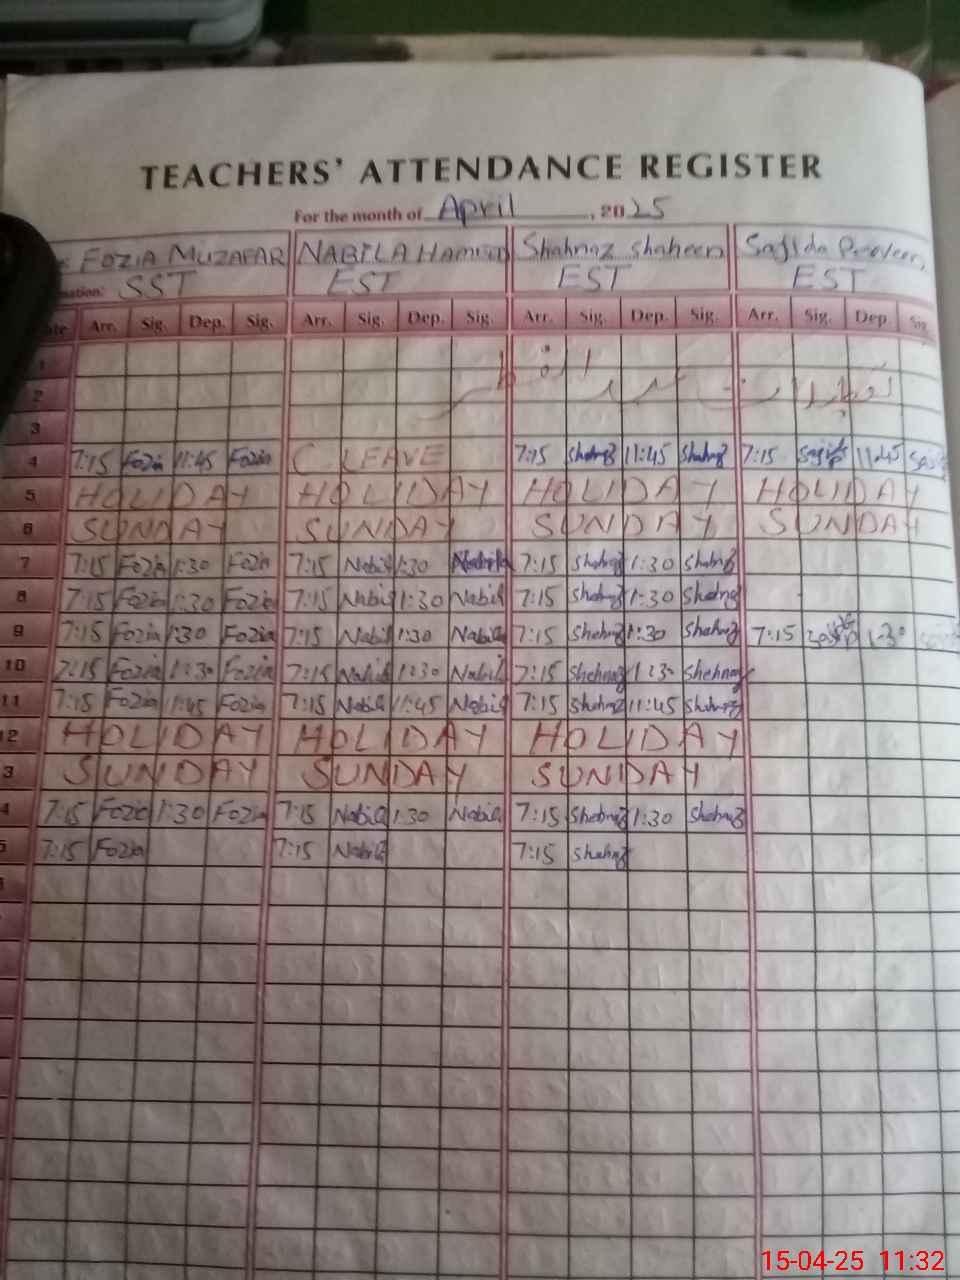 TEACHERS' ATTENDANCE REGISTER
For the month of April, 2025
FOZIA MUZAFAR NABILA Hamid Shahnaz shaheen Sajida Parveen
mation: SST EST EST EST
Arr. Sig. Dep. Sig. Arr. Sig. Dep. Sig. Arr. Sig. Dep. Sig. Arr. Sig. Dep. Sig.
1
2
3
4 7:15 Fozia 11:45 Fozia C LEAVE 7:15 Shahnaz 11:45 Shahnaz 7:15 11:45
5 HOLIDAY HOLIDAY HOLIDAY HOLIDAY
6 SUNDAY SUNDAY SUNDAY SUNDAY
7 7:15 Fozia 1:30 Fozia 7:15 Nabila 1:30 Nabila 7:15 Shahnaz 1:30 Shahnaz
8 7:15 Fozia 1:30 Fozia 7:15 Nabila 1:30 Nabila 7:15 Shahnaz 1:30 Shahnaz
9 7:15 Fozia 1:30 Fozia 7:15 Nabila 1:30 Nabila 7:15 Shahnaz 1:30 Shahnaz 7:15 1:30
10 7:15 Fozia 1:30 Fozia 7:15 Nabila 1:30 Nabila 7:15 Shehnaz 1:30 Shehnaz
11 7:15 Fozia 11:45 Fozia 7:15 Nabila 11:45 Nabila 7:15 Shahnaz 11:45 Shahnaz
12 HOLIDAY HOLIDAY HOLIDAY
3 SUNDAY SUNDAY SUNDAY
4 7:15 Fozia 1:30 Fozia 7:15 Nabila 1:30 Nabila 7:15 Shahnaz 1:30 Shahnaz
5 7:15 Fozia 7:15 Nabila 7:15 Shahnaz
15-04-25 11:32